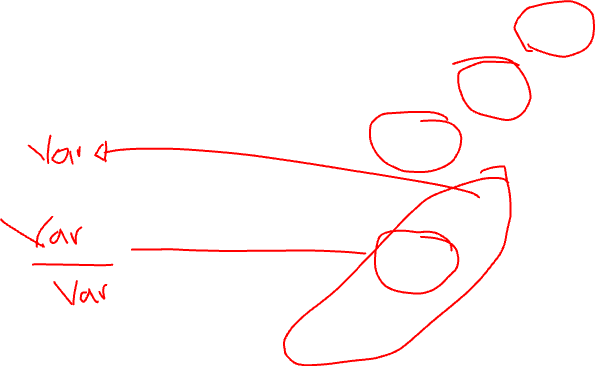 Var
Var
Var